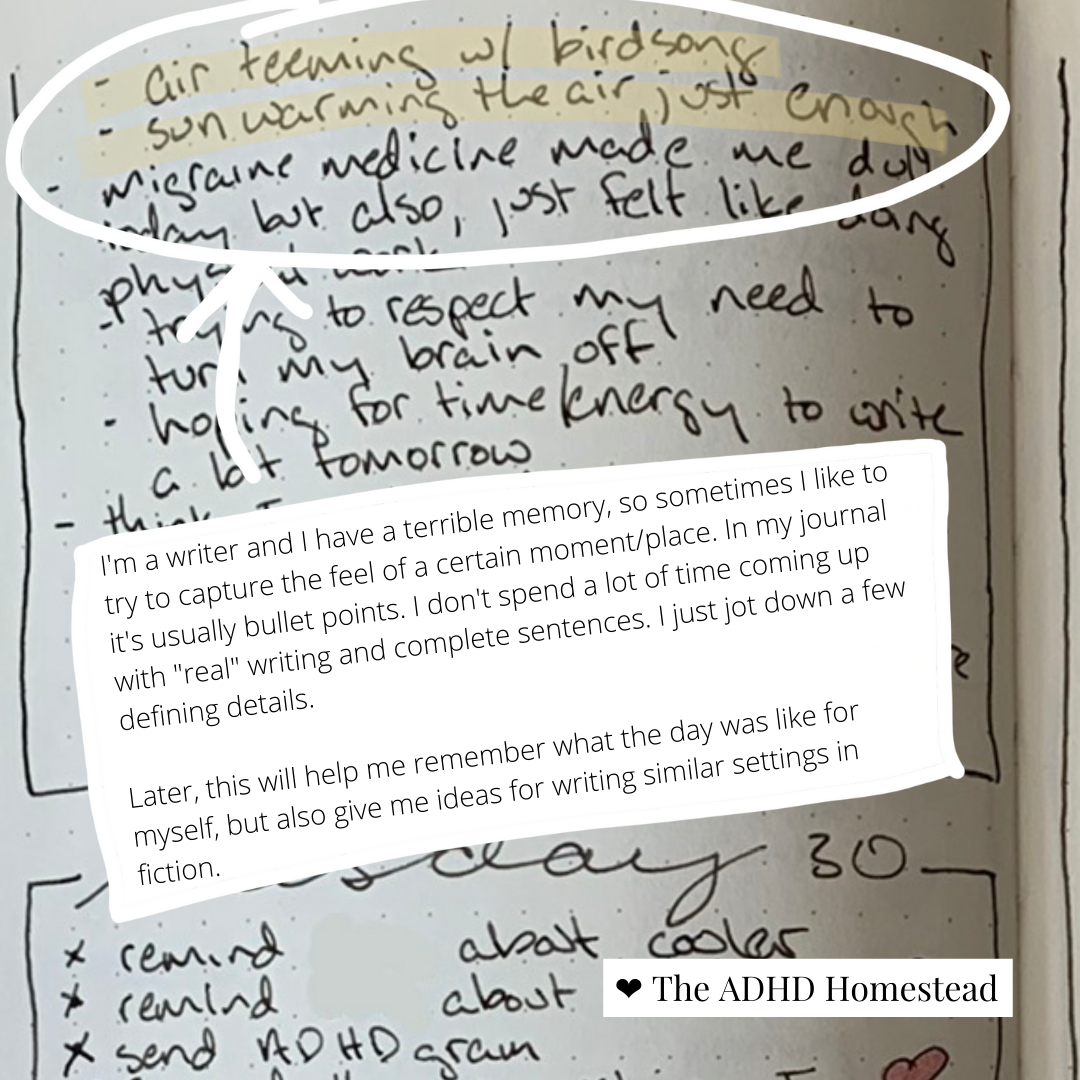 - air teeming w/ birdsong
- sun warming the air, just enough
- migraine medicine made me dull
today but also, just felt like doing
physical work
- trying to respect my need to
turn my brain off
- hoping for time/energy to write
a lot tomorrow
- think I
I'm a writer and I have a terrible memory, so sometimes I like to
try to capture the feel of a certain moment/place. In my journal
it's usually bullet points. I don't spend a lot of time coming up
with "real" writing and complete sentences. I just jot down a few
defining details.
Later, this will help me remember what the day was like for
myself, but also give me ideas for writing similar settings in
fiction.
30
x remind about cooler
x remind about
x send ADHD gram
❤ The ADHD Homestead